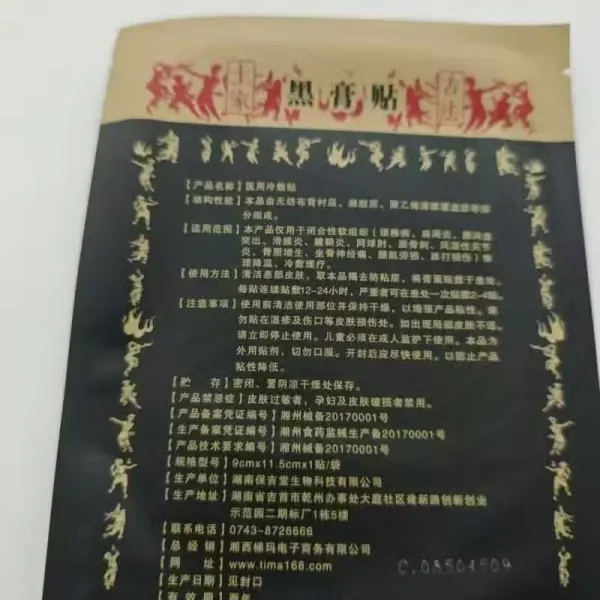 苗家 黑膏贴 古方
【产品名称】医用冷敷贴
【结构性能】本品由无纺布背衬层、麻敷层、聚乙烯薄膜覆盖层等部
分组成。
【适用范围】本产品仅用于闭合性软组织(颈椎病、肩周炎、腰间盘
突出、滑膜炎、腱鞘炎、网球肘、跟骨刺、风湿性关节
炎、骨质增生、坐骨神经痛、腰肌劳损、跌打损伤)等
理降温、冷敷理疗。
【使用方法】清洁患部皮肤,取本品揭去防粘层,将膏面贴敷于患处。
每贴连续贴敷12-24小时,严重者可在患处一次贴敷2-4贴。
【注意事项】使用前清洁使用部位并保持干燥,以增强产品粘性。请
勿贴在湿疹及伤口等皮肤损伤处。如出现局部皮肤不适,
请立即停止使用。儿童必须在成人监护下使用。本品为
外用贴剂,切勿口服。开封后应尽快使用,以防止产品
粘性降低。
【贮 存】密闭、置阴凉干燥处保存。
【产品禁忌症】皮肤过敏者,孕妇及皮肤破损者禁用。
【产品备案凭证编号】湘州械备20170001号
【生产备案凭证编号】湘州食药监械生产备20170001号
【产品技术要求编号】湘州械备20170001号
【规格型号】9cm×11.5cm×1贴/袋
【生产单位】湖南保吉堂生物科技有限公司
【生产地址】湖南省吉首市乾州办事处大庭社区建新路创新创业
示范园二期标厂1栋5楼
【联系电话】0743-8726666
【总 经 销】湘西梯玛电子商务有限公司
【网 址】www.tima168.com
【生产日期】见封口
【有 效 期】两年
C.08504509